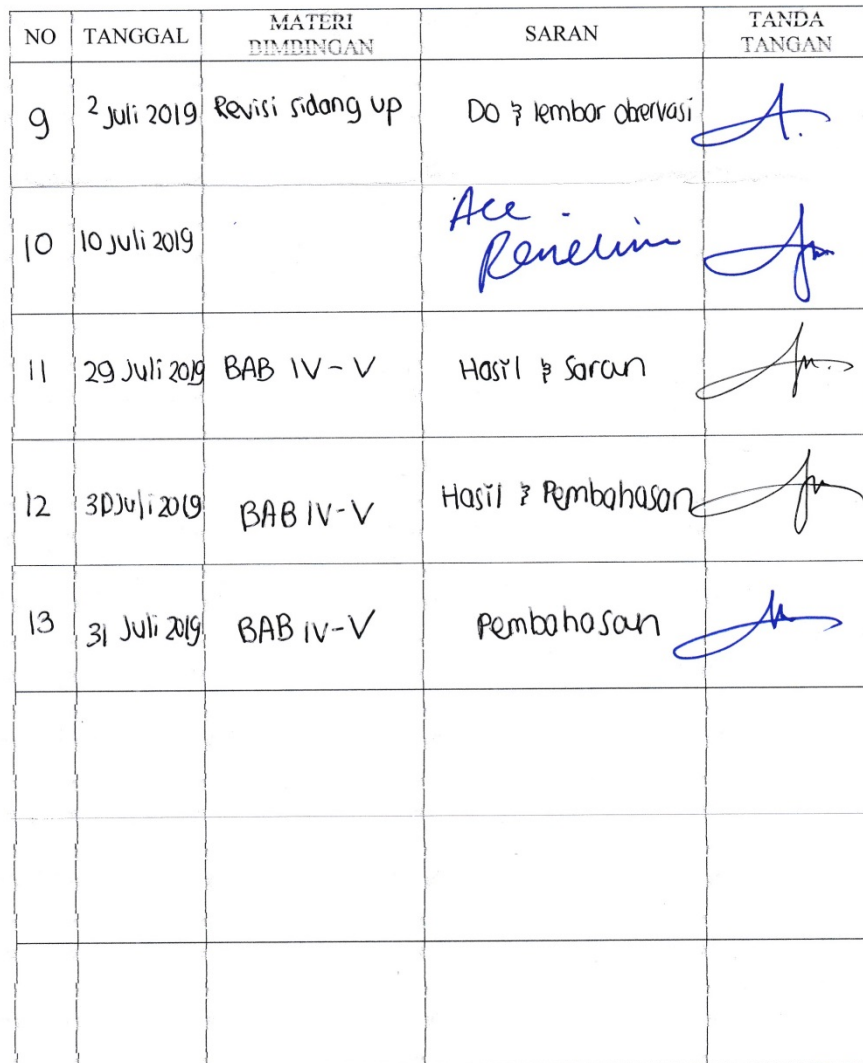 NO TANGGAL MATERI BIMBINGAN SARAN TANDA TANGAN
9 2 Juli 2019 Revisi sidang up DO & lembar obervasi
10 10 Juli 2019 Acc
11 29 Juli 2019 BAB IV - V Hasil & Saran
12 30 Juli 2019 BAB IV-V Hasil & Pembahasan
13 31 Juli 2019 BAB IV-V Pembahasan